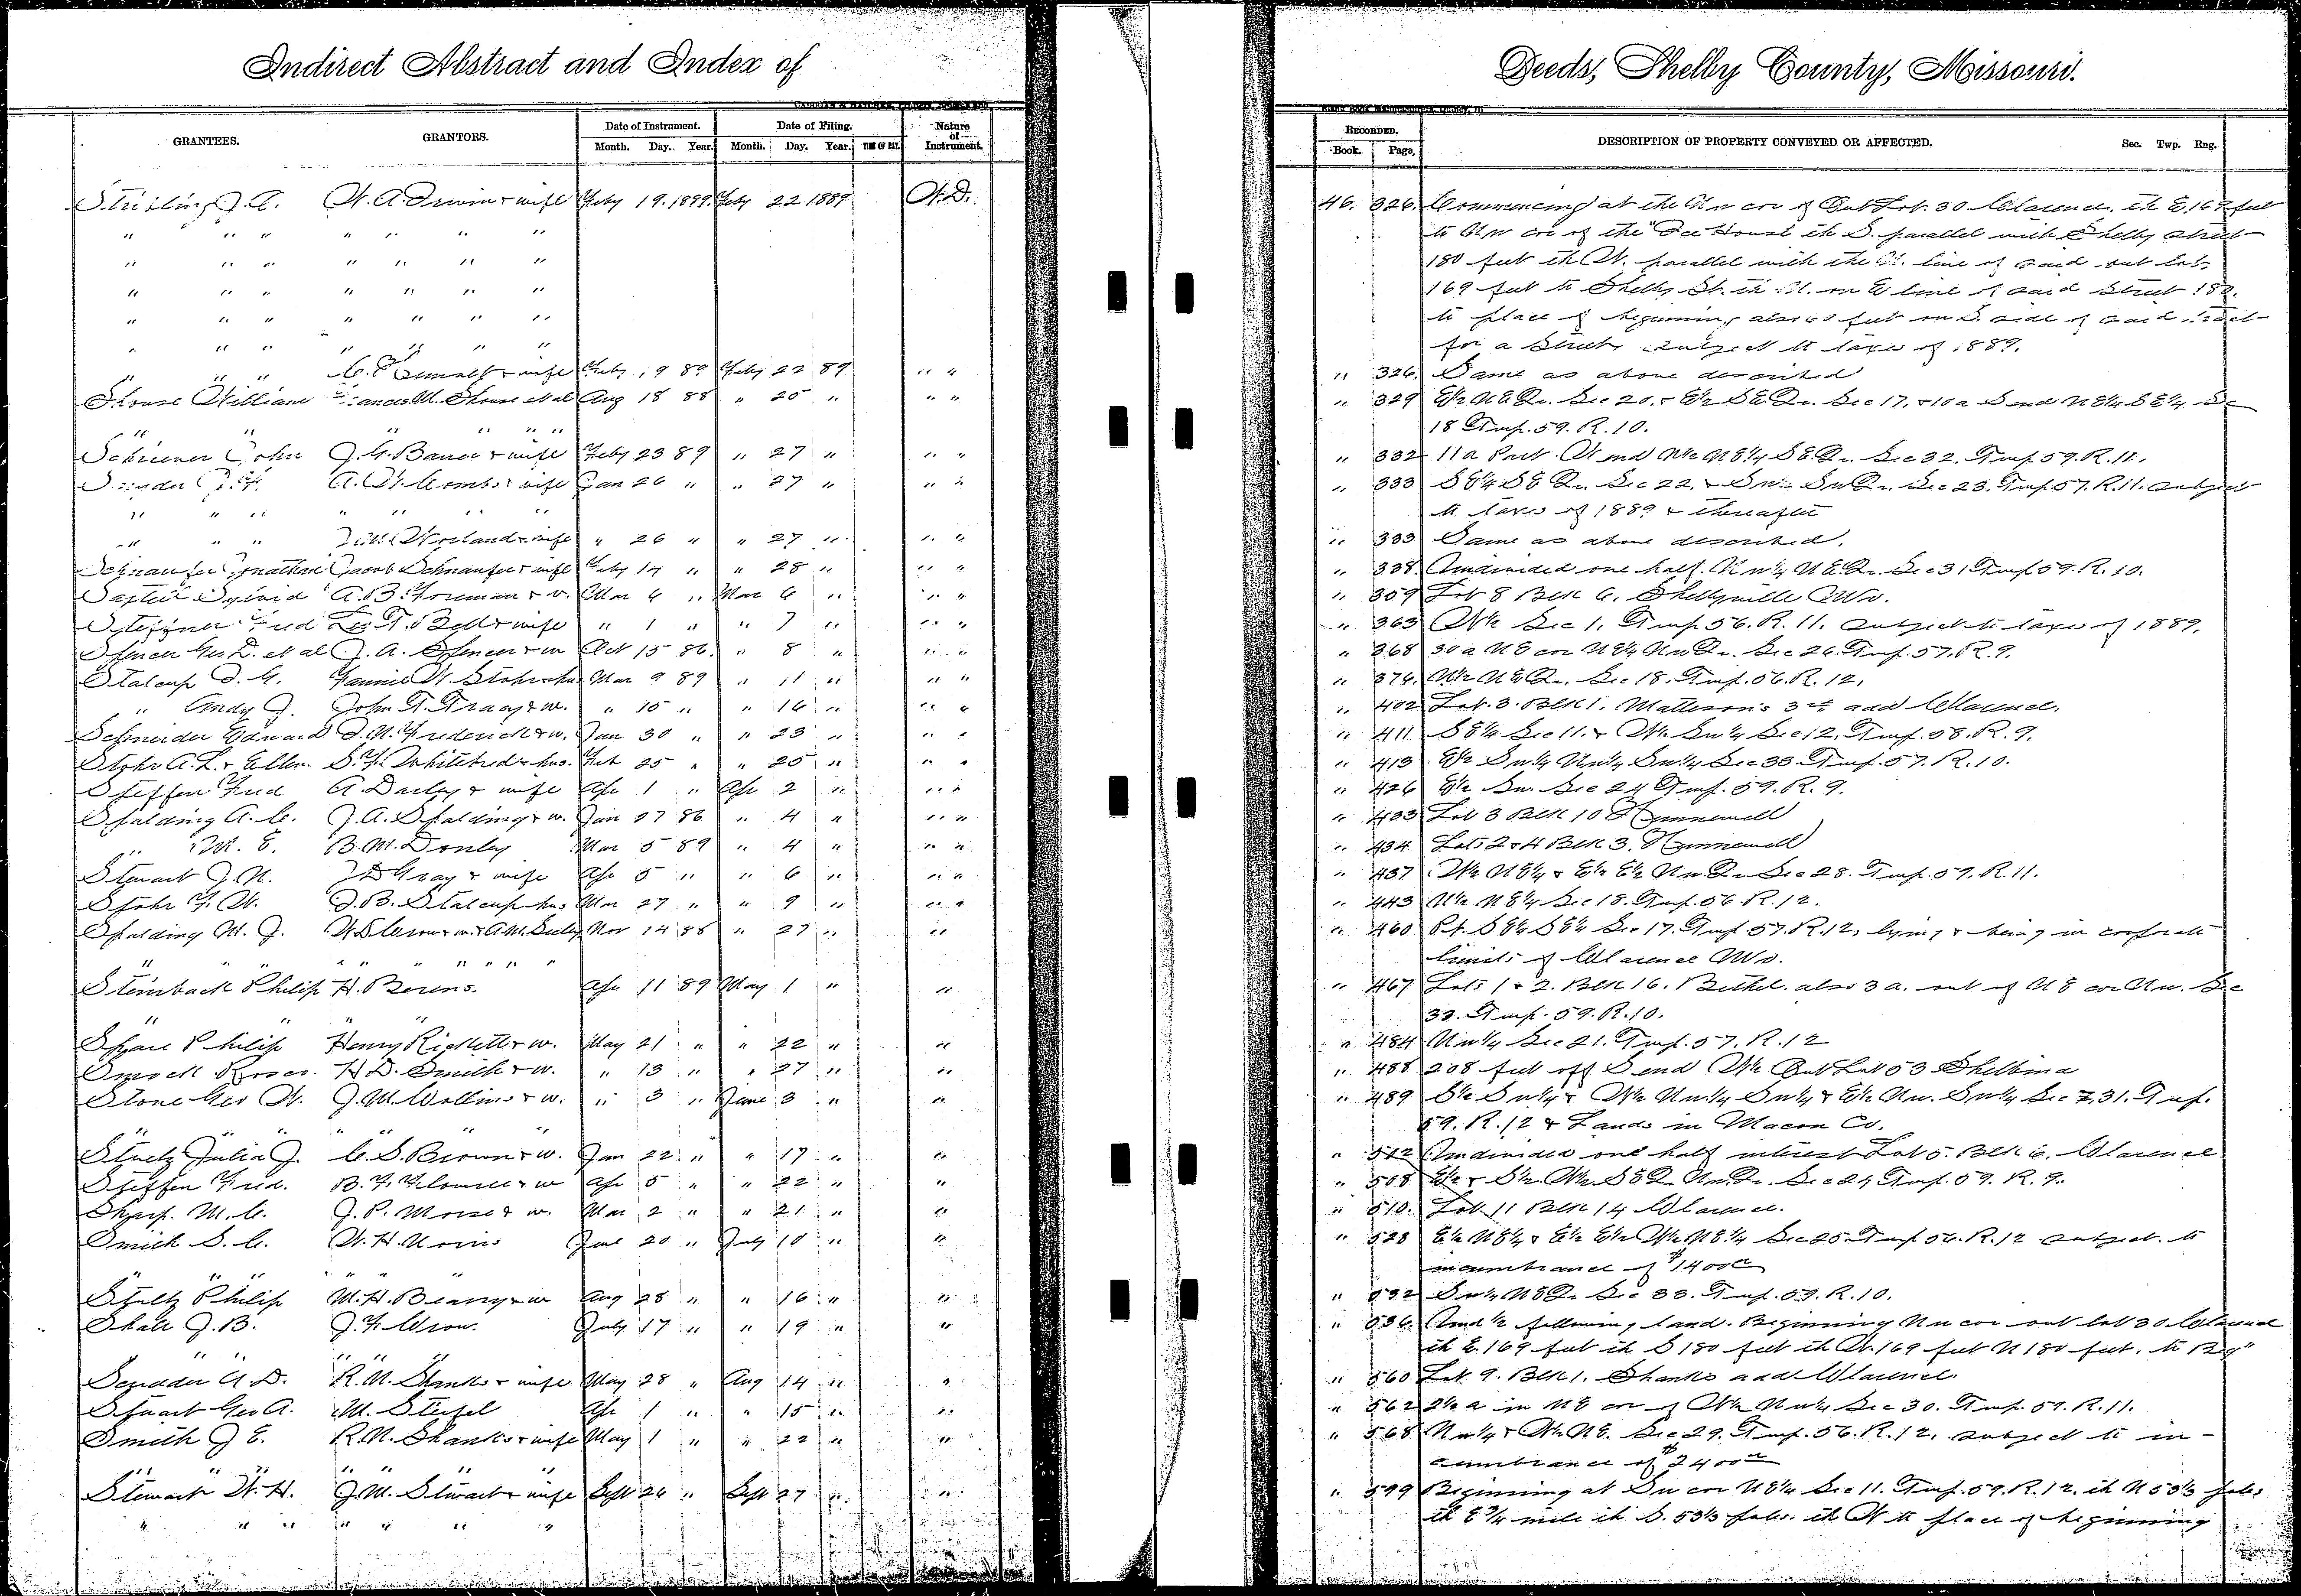 Indirect Abstract and Index of Deeds, Shelby County, Missouri.
GRANTEES. GRANTORS. Date of Instrument. Date of Filing. Nature of Instrument. RECORDED. DESCRIPTION OF PROPERTY CONVEYED OR AFFECTED. Sec. Twp. Rng.
Month. Day. Year. Month. Day. Year. Book. Page.
J. A. W. A. Irwin & wife Feby 19. 1889. Feby 22 1889 W.D. 46. 326. Commencing at the Nw cor of Out Lot. 30 Clarence. th E. 169 feet
" " " " " " " to Nw cor of the Ice House th S. parallel with Shelby street
" " " " " " " 180 feet th W. parallel with the N. line of said out lot
" " " " " " " 169 feet to Shelby St. th N. on E line of said Street 180.
" " " " " " " to place of beginning also 40 feet on S. side of said tract
" " " " " " " for a Street subject to taxes of 1889.
" " " & wife Feby 19 89 Feby 22 89 " " " 326. Same as above described
Shouse William Frances M. Shouse et al Aug 18 88 " 25 " " " " 329 E½ N E Qr. Sec 20. & E½ S E Qr. Sec 17. & 10 a S end N E¼ S E¼ Sec
" " " " " " 18 Twp. 59. R. 10.
John J. G. Bauer & wife Feby 23 89 " 27 " " " " 332 11 a Part W end N½ N E¼ S E Qr. Sec 32. Twp 59. R. 11.
Snyder J. F. A. W. Combs & wife Jan 26 " " 27 " " " " 333 S E¼ S E Qr. Sec 22. & Sw¼ Sw Qr. Sec 23. Twp. 57. R. 11. subject
" " " " " " " to taxes of 1889 & thereafter
" " " Worland & wife " 26 " " 27 " " " " 333 Same as above described.
Schnaufer Jonathan Jacob Schnaufer & wife Feby 14 " " 28 " " " " 338. Undivided one half. Nw¼ N E Qr. Sec 31 Twp 59. R. 10.
A. B. Foreman & w. Mar 6 " Mar 6 " " " " 359 Lot 8 Blk 6. Shelbyville Mo.
Fred T. Bell & wife " 1 " " 7 " " " " 363 W½ Sec 1. Twp 56. R. 11. subject to taxes of 1889.
Spencer Geo D. et al J. A. Spencer & w Oct 15 86. " 8 " " " " 368 30 a N E cor N E¼ Nw Qr. Sec 26. Twp. 57. R. 9.
Stalcup J. G. Fannie W. Mar 9 89 " 11 " " " " 376. N½ N E Qr. Sec 18. Twp. 56. R. 12.
" Andy J. John T. Tracy & w. " 15 " " 16 " " " " 402 Lot. 3. Blk 1. Matteson's 3rd add Clarence.
Schneider Edward J. M. Frederick & w. Jan 30 " " 23 " " " " 411 S E¼ Sec 11. & W½ Sw¼ Sec 12. Twp. 58. R. 9.
Stohr A. L. & Ellen. S. F. Whitehead & hus. Feb 25 " " 25 " " " " 413 E½ Sw¼ Nw¼ Sw¼ Sec 33. Twp. 57. R. 10.
Steffen Fred A. Darley & wife Apr 1 " Apr 2 " " " " 426 E½ Sw. Sec 24 Twp. 59. R. 9.
Spalding A. C. J. A. Spalding & w. Jan 27 86 " 4 " " " " 433 Lot 3 Blk 10 Hunnewell
" M. E. B. M. Donley Mar 5 89 " 4 " " " " 434 Lots 2 & 4 Blk 3. Hunnewell
Stewart J. N. Gray & wife Apr 5 " " 6 " " " " 437 W½ N E¼ & E½ E½ Nw Qr Sec 28. Twp. 59. R. 11.
Stohr F. W. J. B. Stalcup hus Mar 27 " " 9 " " " " 443 N½ N E¼ Sec 18. Twp. 56. R. 12.
Spalding M. J. Nov 14 88 " 27 " " " 460 Pt. S E¼ S E¼ Sec 17. Twp 57. R. 12, lying & being in corporate
" " " " " " " limits of Clarence Mo.
Steinback Philip H. Berens. Apr 11 89 May 1 " " " 467 Lots 1 & 2. Blk 16. Bethel. also 3 a. out of N E cor Nw. Sec
" " 33. Twp. 59. R. 10.
Philip Henry Ricketts & w. May 21 " " 22 " " " 484 Nw¼ Sec 21. Twp. 57. R. 12
H. D. Smith & w. " 13 " " 27 " " " 488 208 feet off S end W½ Out Lot 53 Shelbina
Stone Geo W. J. M. Collins & w. " 3 " June 3 " " " 489 S½ Sw¼ & W½ Nw¼ Sw¼ & E½ Nw. Sw¼ Sec 7. 31. Twp.
" " " " " " 59. R. 12 & Lands in Macon Co.
Julia J. C. S. Brown & w. Jan 22 " " 17 " " " 512 Undivided one half interest Lot 5. Blk 6. Clarence
Steffen Fred. B. F. & w Apr 5 " " 22 " " " 508 E½ & S½ W½ S E Qr Nw Qr. Sec 24 Twp. 59. R. 9.
Sharp. M. C. J. P. Morse & w. Mar 2 " " 21 " " " 510. Lot 11 Blk 14 Clarence.
Smith S. C. W. H. June 20 " July 10 " " " 528 E½ N E¼ & E½ E½ W½ N E¼ Sec 25. Twp 56. R. 12 subject to
" " " " " " incumbrance of $1400 00
Stultz Philip M. H. & w Aug 28 " " 16 " " " 532 Sw¼ N E Qr Sec 33. Twp. 59. R. 10.
J. B. J. F. July 17 " " 19 " " " 536. Und ½ following land. Beginning Nw cor out lot 30 Clarence
" " " " " th E. 169 feet th S 180 feet th W. 169 feet N 180 feet. to Beg"
A. D. R. N. Shanks & wife May 28 " Aug 14 " " " 560 Lot 9. Blk 1. Shanks add Clarence.
Stuart Geo A. M. Apr 1 " " 15 " " " 562 2½ a in N E cor of W½ Nw¼ Sec 30. Twp. 59. R. 11.
Smith J E. R. N. Shanks & wife May 1 " " 22 " " " 568 Nw¼ & W½ N E. Sec 29. Twp. 56. R. 12. subject to in-
" " " " " " cumbrance of $2400 00
Stewart W. H. J. M. Stewart & wife Sept 26 " Sept 27 " " " 599 Beginning at Sw cor N E¼ Sec 11. Twp. 59. R. 12. th N 53⅓ poles
" " " " " " " th E ¾ mile th S. 53⅓ poles. th W to place of beginning